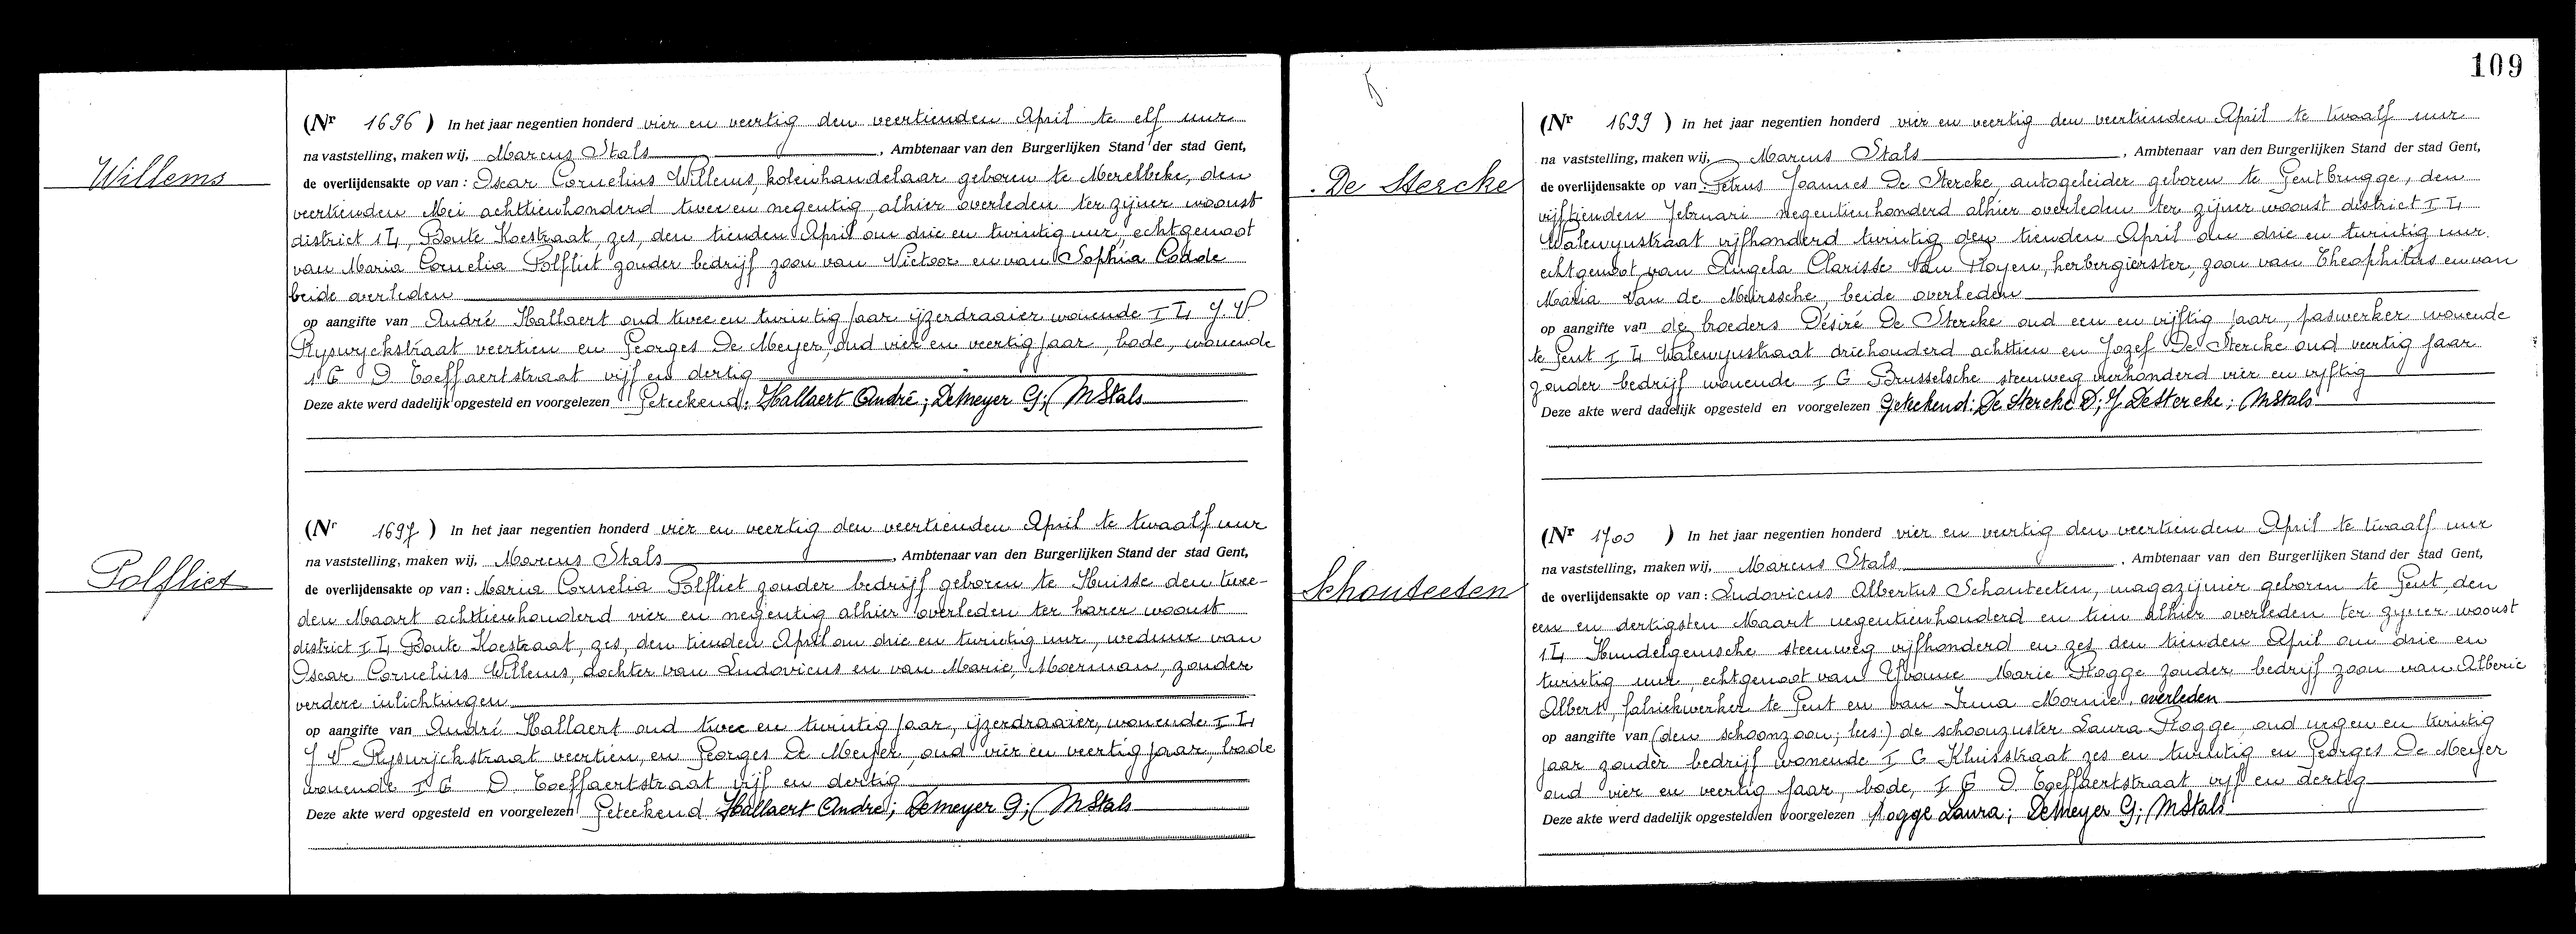 Willems
(Nr 1696) In het jaar negentien honderd vier en veertig den veertienden April te elf uur
na vaststelling, maken wij, Marcus Stals, Ambtenaar van den Burgerlijken Stand der stad Gent,
de overlijdensakte op van: Oscar Cornelius Willems, kolenhandelaar geboren te Merelbeke, den
veertienden Mei achttienhonderd twee en negentig, alhier overleden ter zijner woonst
district I L, Bonte Koestraat, zes, den tienden April om drie en twintig uur, echtgenoot
van Maria Cornelia Polfliet zonder bedrijf zoon van Victoor en van Sophia Codde
beide overleden
op aangifte van André Hallaert oud twee en twintig jaar ijzerdraaier wonende I L, J. V.
Ryswyckstraat veertien en Georges De Meyer, oud vier en veertig jaar, bode, wonende
I G D Toeffaertstraat vijf en dertig
Deze akte werd dadelijk opgesteld en voorgelezen Geteekend: Hallaert André; Demeyer G; MStals
Polfliet
(Nr 1697) In het jaar negentien honderd vier en veertig den veertienden April te twaalf uur
na vaststelling, maken wij, Marcus Stals, Ambtenaar van den Burgerlijken Stand der stad Gent,
de overlijdensakte op van: Maria Cornelia Polfliet zonder bedrijf geboren te Huisse den twee-
den Maart achttienhonderd vier en negentig alhier overleden ter harer woonst
district I L, Bonte Koestraat, zes, den tienden April om drie en twintig uur, weduwe van
Oscar Cornelius Willems, dochter van Ludovicus en van Marie, Moerman, zonder
verdere inlichtingen
op aangifte van André Hallaert oud twee en twintig jaar, ijzerdraaier, wonende I L,
J V Ryswyckstraat veertien, en Georges De Meyer, oud vier en veertig jaar, bode
wonende I G D. Toeffaertstraat vijf en dertig
Deze akte werd opgesteld en voorgelezen Geteekend Hallaert André; Demeyer G; MStals
109
De Stercke
(Nr 1699) In het jaar negentien honderd vier en veertig den veertienden April te twaalf uur
na vaststelling, maken wij, Marcus Stals, Ambtenaar van den Burgerlijken Stand der stad Gent,
de overlijdensakte op van: Petrus Joannes De Stercke, autogeleider geboren te Gentbrugge, den
vijftienden Februari negentienhonderd alhier overleden ter zijner woonst district I L
Walewynstraat vijfhonderd twintig den tienden April om drie en twintig uur.
echtgenoot van Angela Clarisse Van Royen, herbergierster, zoon van Theophilus en van
Maria Van de Meirssche, beide overleden
op aangifte van de broeders Désiré De Stercke oud een en vijftig jaar, paswerker wonende
te Gent I L Walewynstraat driehonderd achttien en Jozef De Stercke oud veertig jaar
zonder bedrijf wonende I G Brusselsche steenweg vierhonderd vier en vyftig
Deze akte werd dadelijk opgesteld en voorgelezen Geteekend: De Stercke D; J DeStercke; MStals
Schouteeten
(Nr 1700) In het jaar negentien honderd vier en veertig den veertienden April te twaalf uur
na vaststelling, maken wij, Marcus Stals. Ambtenaar van den Burgerlijken Stand der stad Gent,
de overlijdensakte op van: Ludovicus Albertus Schouteeten, magazijnier geboren te Gent, den
een en dertigsten Maart negentienhonderd en tien alhier overleden ter zyner woonst
I L Hundelgemsche steenweg vijfhonderd en zes den tienden April om drie en
twintig uur, echtgenoot van Yvonne Marie Rogge zonder bedrijf zoon van Alberic
Albert, fabriekwerker te Gent en van Irma Mornie, overleden
op aangifte van (den schoonzoon; lees:) de schoonzuster Laura Rogge, oud negen en twintig
jaar zonder bedrijf wonende I G Kluisstraat zes en twintig en Georges De Meyer
oud vier en veertig jaar, bode, I G D. Toeffaertstraat vijf en dertig
Deze akte werd dadelijk opgesteld en voorgelezen Rogge Laura; Demeyer G; MStals